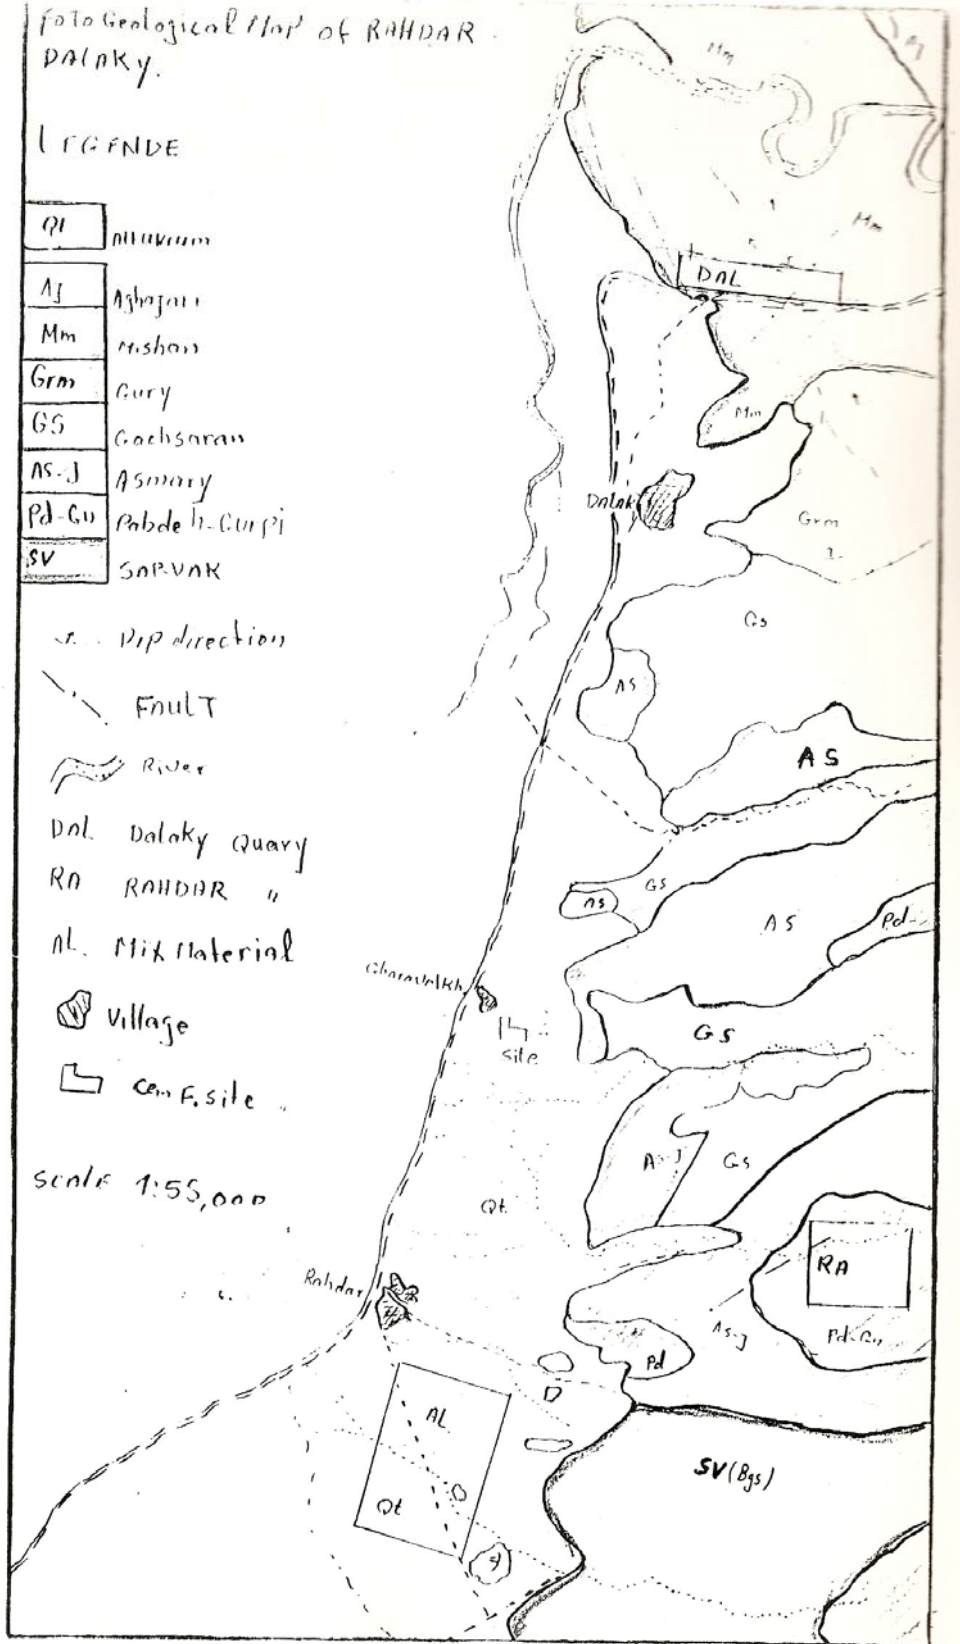 foto Geological Map of RAHDAR
DALAKY.
LEGENDE
Ql Alluvium
Aj Aghajari
Mm Mishan
Grm Gury
GS Gachsaran
AS-J Asmary
Pd-Gu Pabdeh-Gurpi
SV SARVAK
Dip direction
FAULT
River
DAL. Dalaky Quary
RA RAHDAR "
AL. Mix Material
Village
Cem F. site
Scale 1:55,000
Mm
Aj
Mm
DAL
Mm
DALAK
Grm
Gs
AS
AS
GS
AS
AS
Pd-
site
GS
As-J
Gs
Qt
RA
Rahdar
As-j
Pd-Gu
Pd
AL
SV(Bgs)
Qt